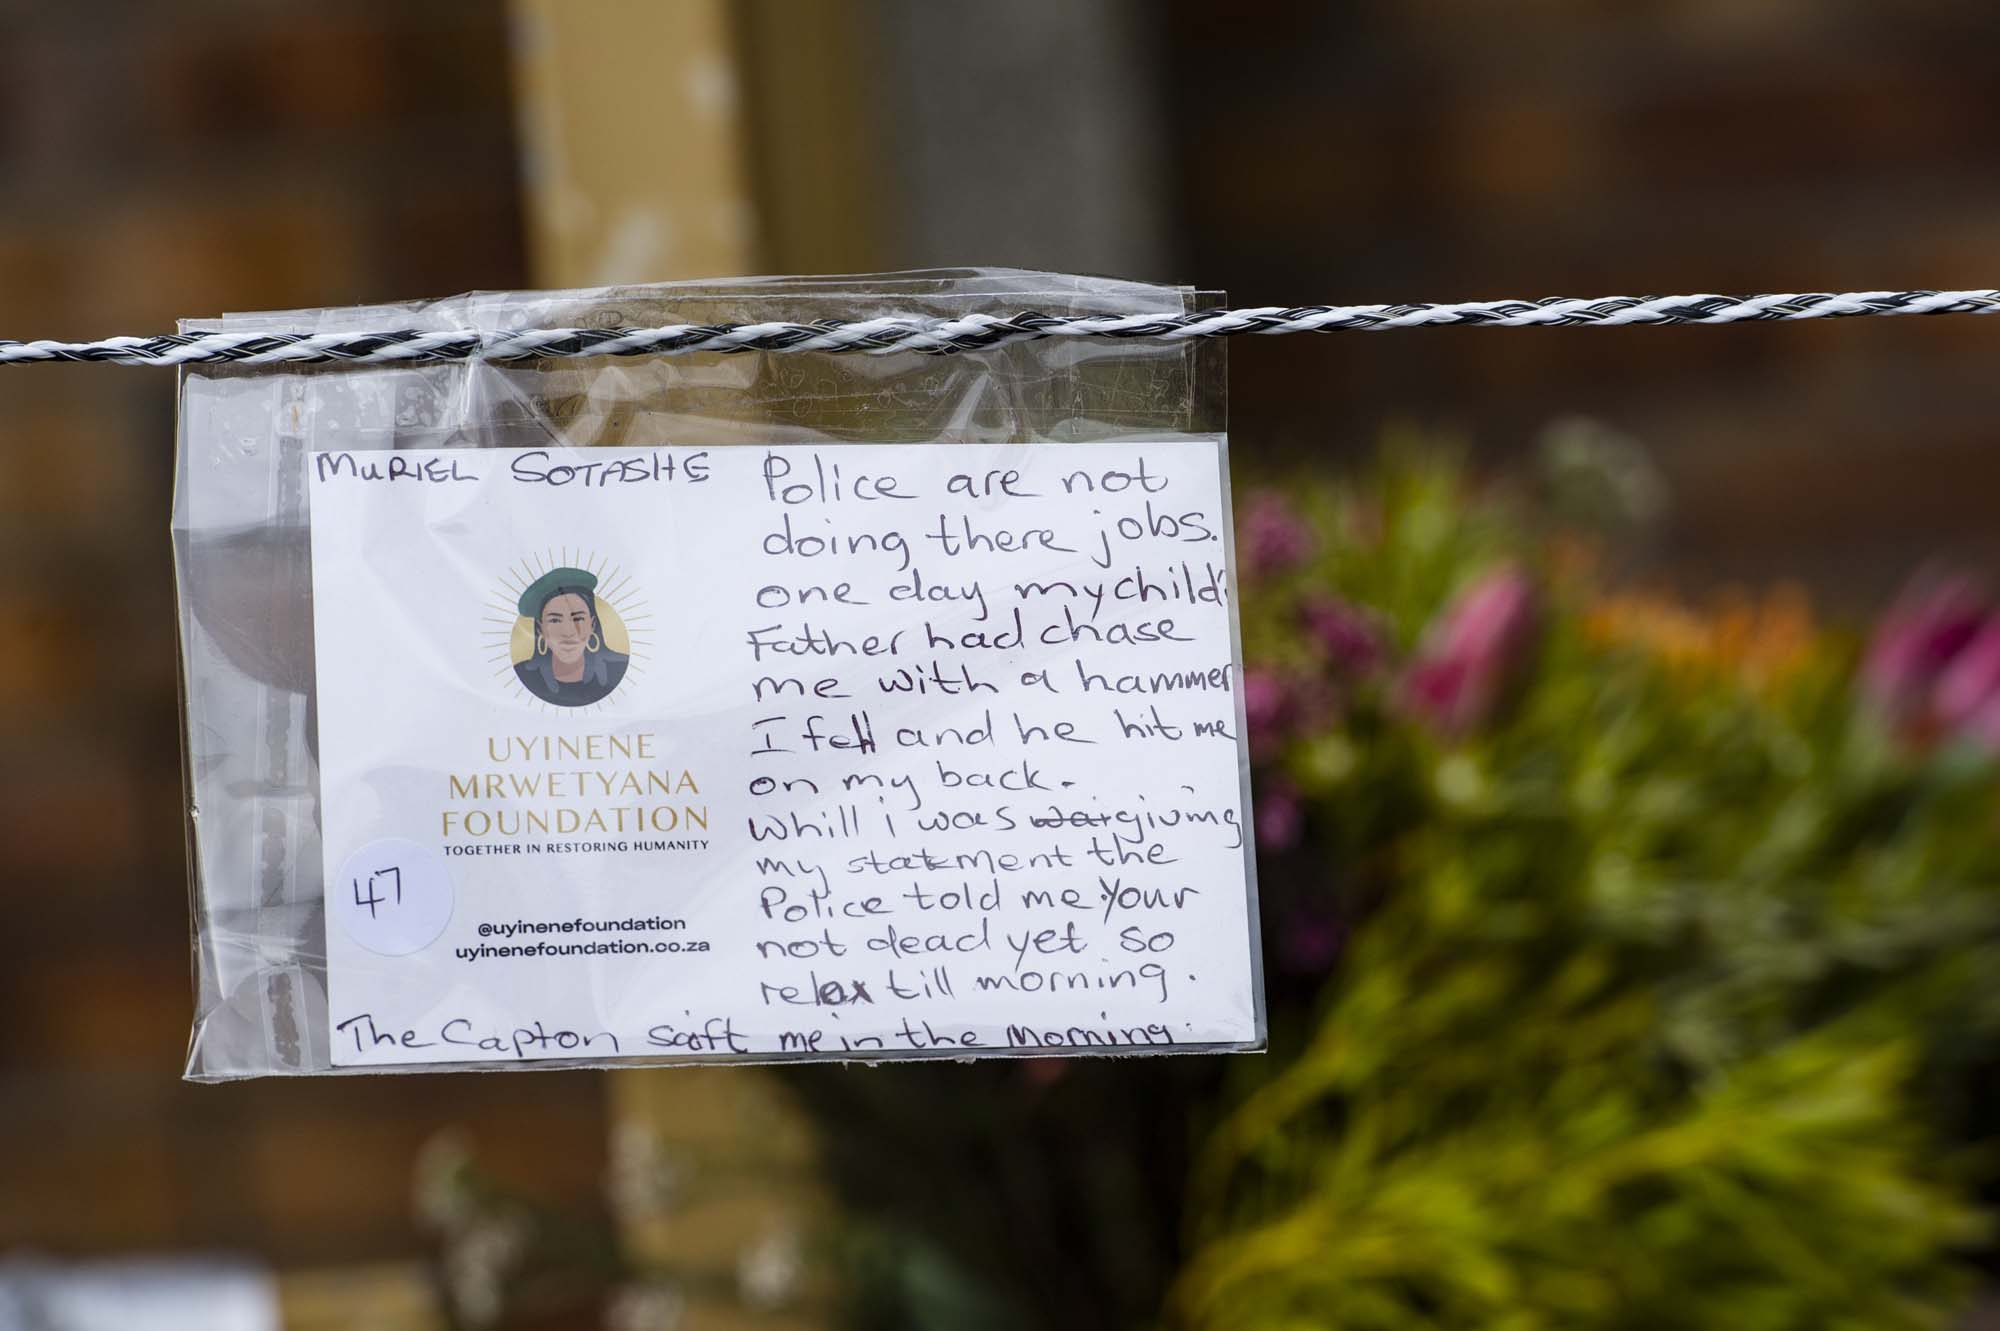 MURIEL SOTASHE
UYINENE
MRWETYANA
FOUNDATION
TOGETHER IN RESTORING HUMANITY
47
@uyinenefoundation
uyinenefoundation.co.za
Police are not
doing there jobs.
one day my child's
Father had chase
me with a hammer
I fell and he hit me
on my back.
Whill i was giving
my statment the
Police told me Your
not dead yet so
relax till morning.
The Capton in the Morning.